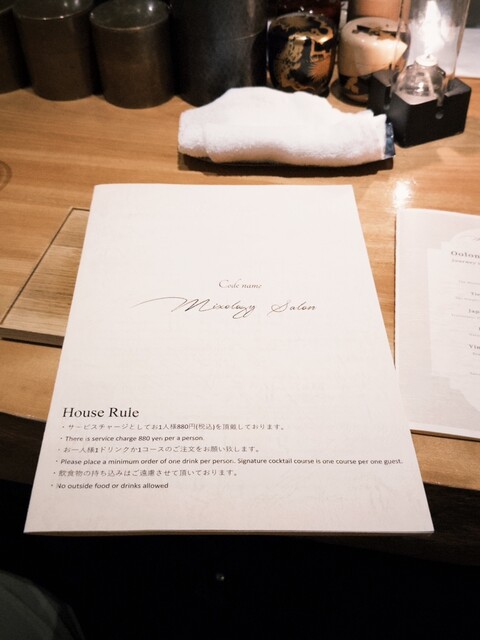 Code name
Mixology Salon
House Rule
・サービスチャージとしてお1人様880円(税込)を頂戴しております。
・There is service charge 880 yen per a person.
・お一人様1ドリンクか1コースのご注文をお願い致します。
・Please place a minimum order of one drink per person. Signature cocktail course is one course per one guest.
・飲食物の持ち込みはご遠慮させて頂いております。
・No outside food or drinks allowed